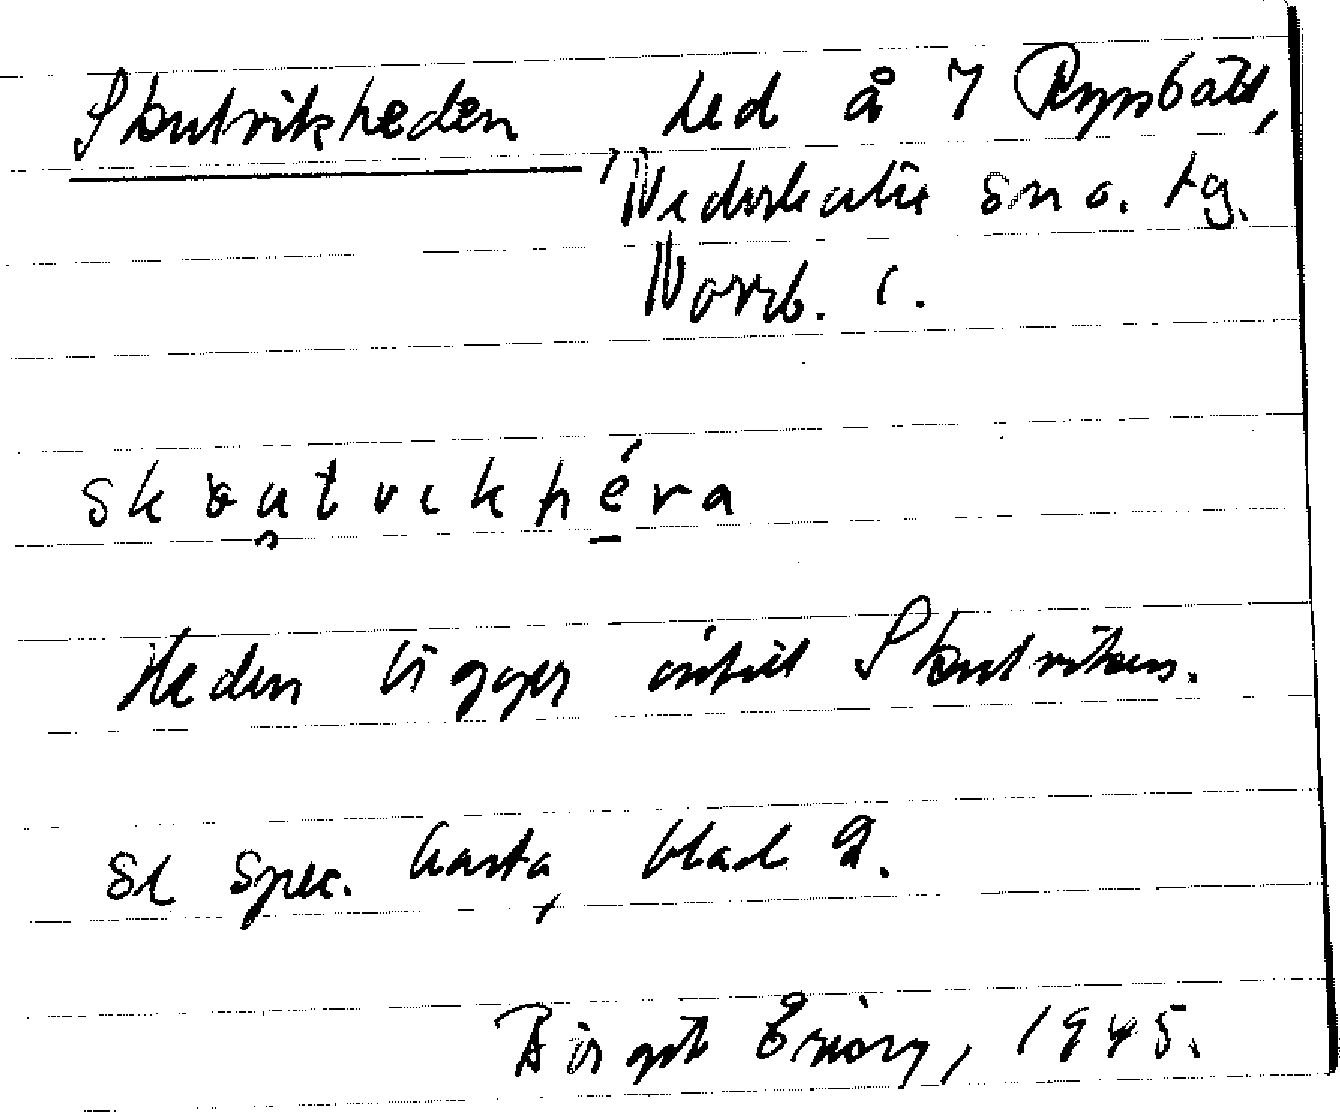 Skutvikheden hed å 7 Rynbäck,
Nederkalix sn o. tg.
Norrb. l.
skåutvikhéra
Heden ligger intill Skutviken.
se spec. karta, blad 9.
Birgit Falck, 1945.